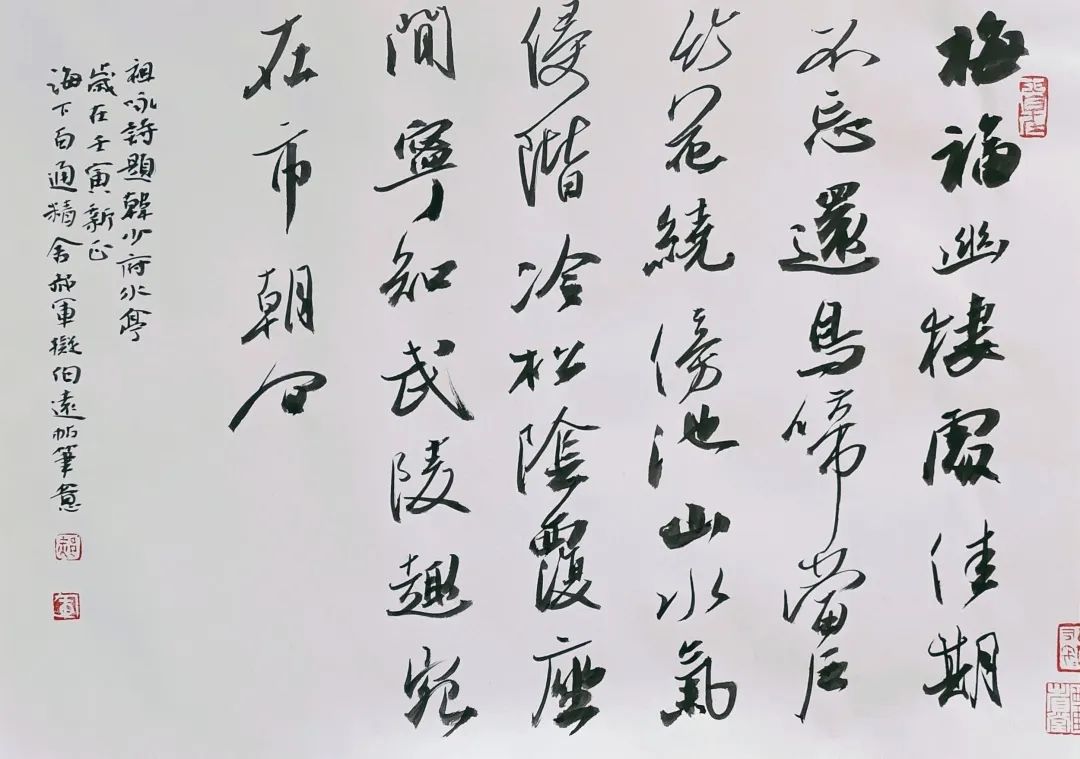 梅福幽棲處佳期
不忘還鳥啼當戶
竹花繞傍池山水氣
侵階冷松陰覆座
間寧知武陵趣宛
在市朝間
祖咏詩題韓少府水亭
歲在壬寅新正
海下百通精舍郝軍擬伯遠帖筆意
郝
軍